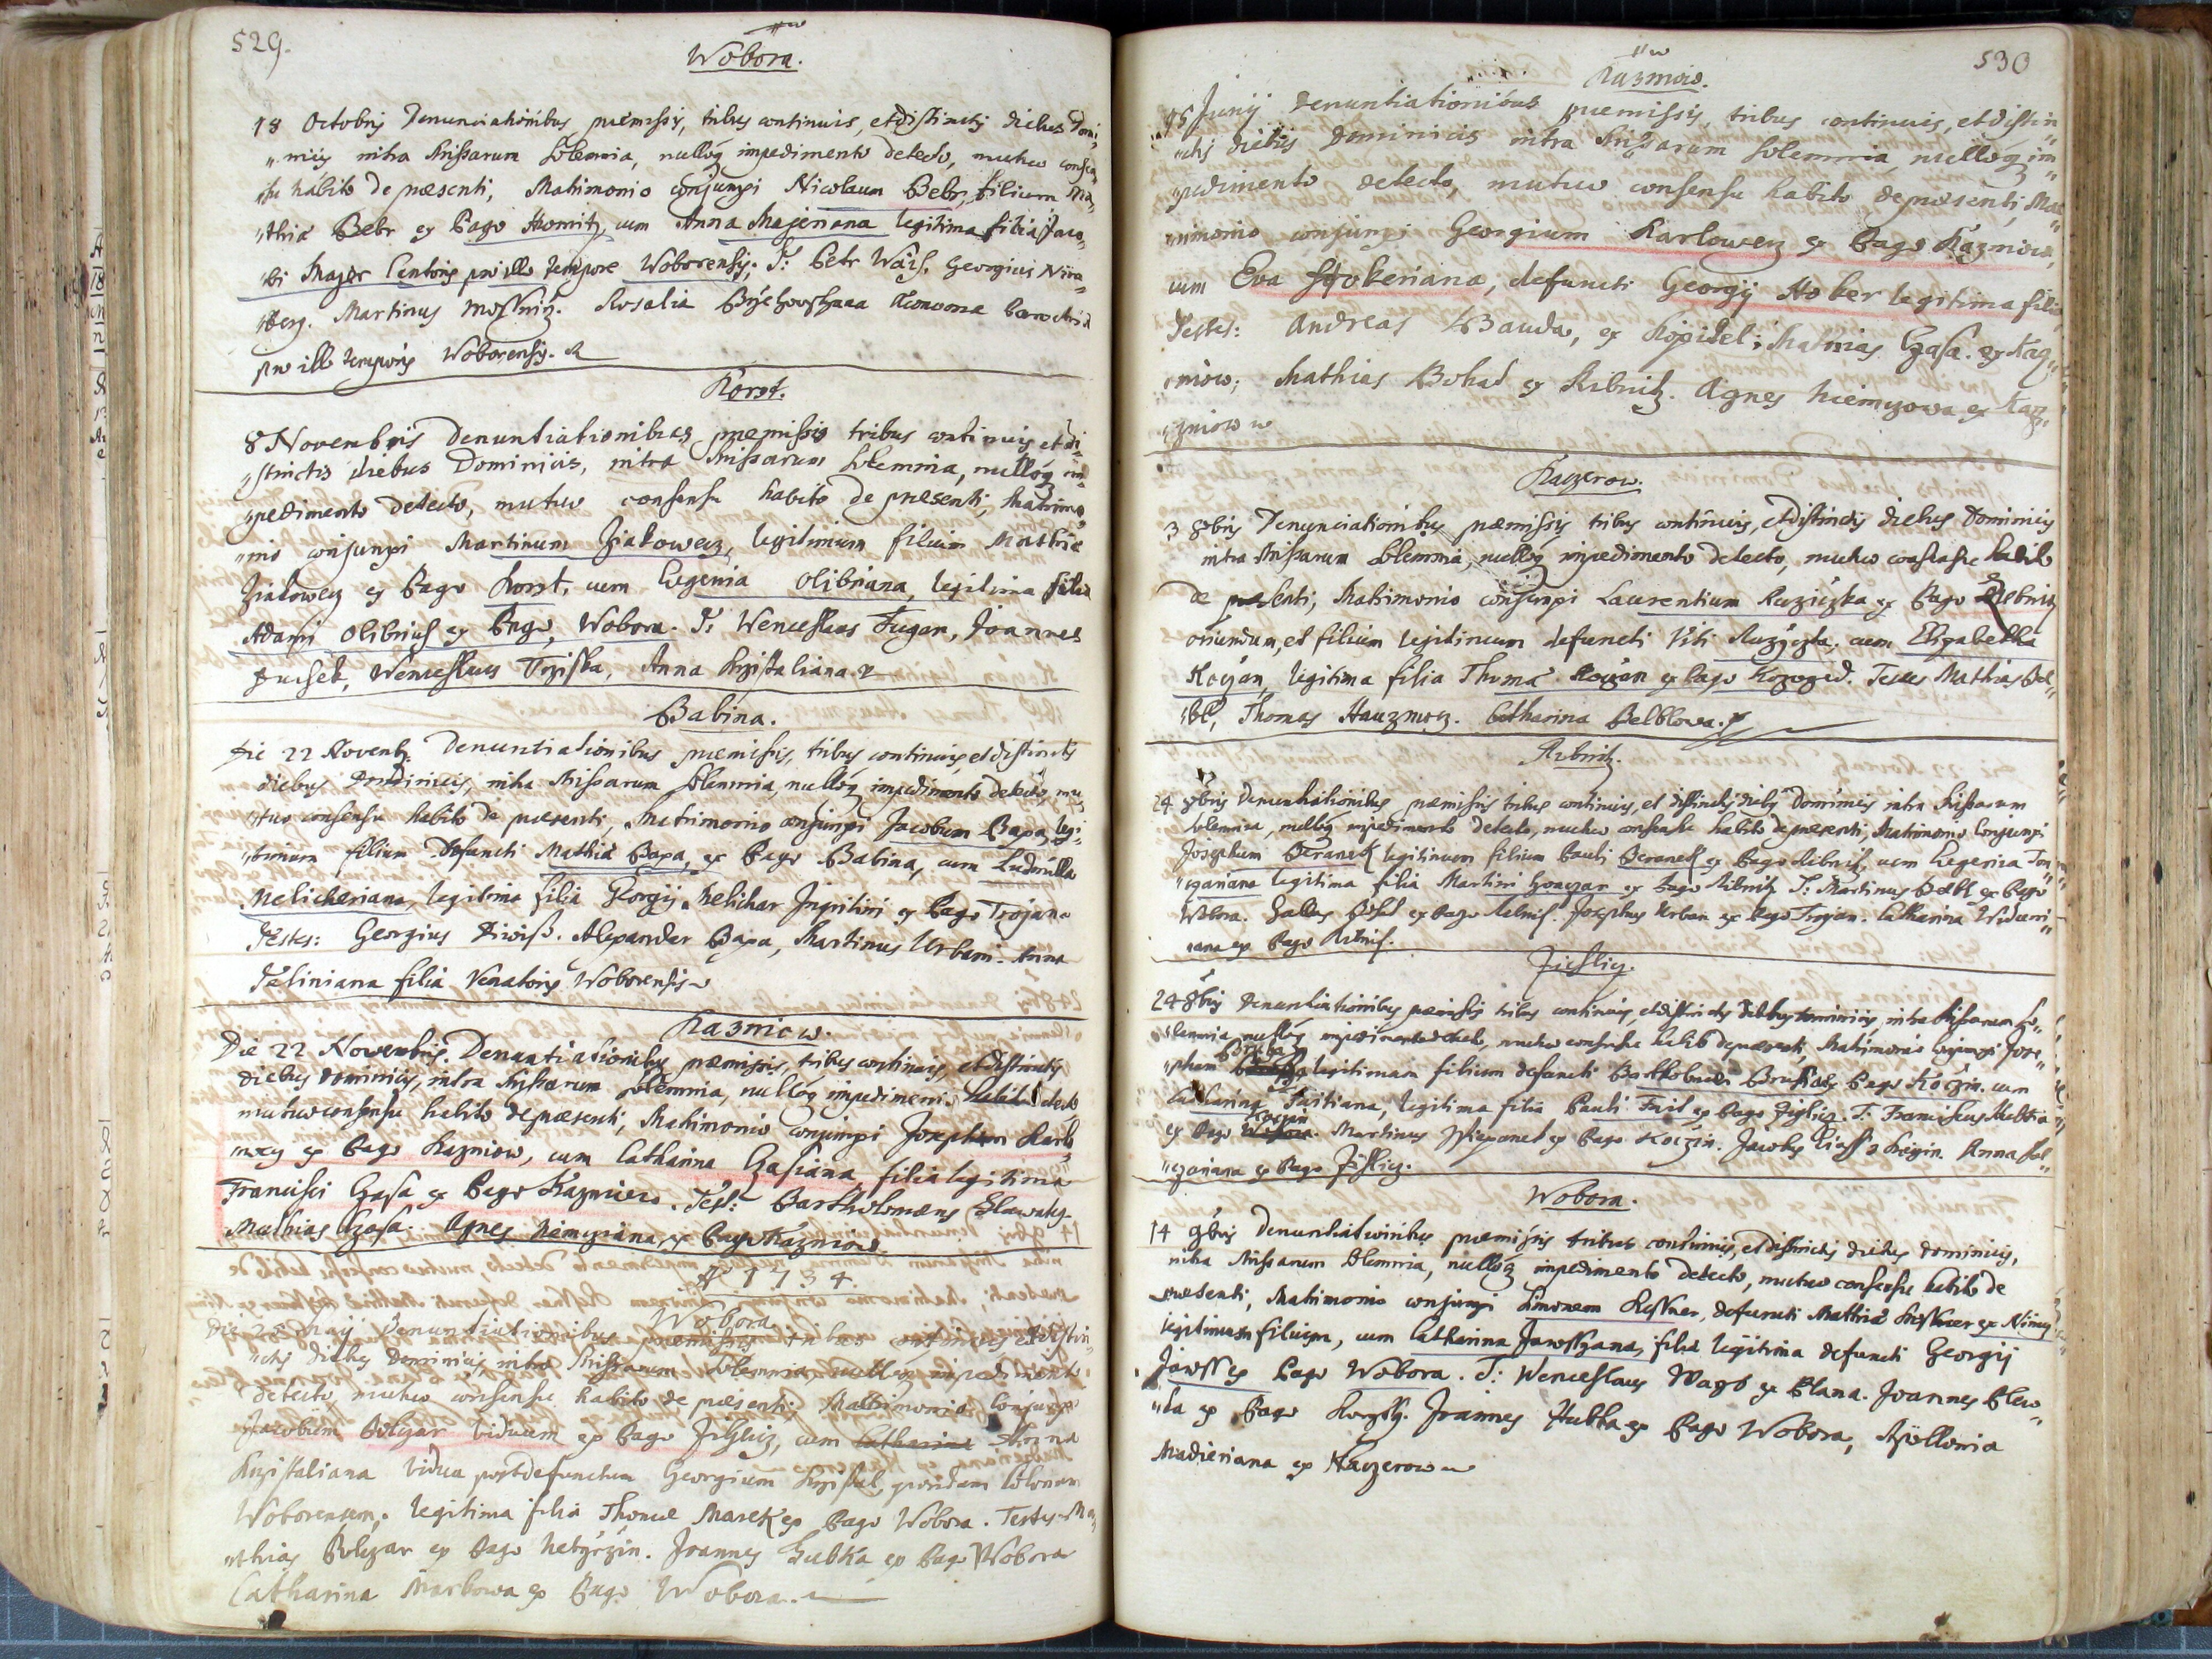 529.
Wobora.
18 Octobris Denunciationibus praemissis, tribus continuis, et distinctis diebus Domi„
„nicis intra Missarum Solemnia, nulloq impedimento detecto, mutuo consen„
„su habito de praesenti, Matrimonio conjunxi Nicolaum Bebr, filium Ma„
„thiae Bebr ex Pago Homitz, cum Anna Majeriana legitima filia Jaco„
„bi Majer Cantoris pro illo tempore Woborensis. T: Petr Georgius
Martinus Rosalia
pro illo temporis Woborensis.
Korst.
8 Novembris Denuntiationibus praemissis tribus continuis et di„
„stinctis diebus Dominicis, intra Missarum Solemnia, nulloq im„
„pedimento detecto, mutuo consensu habito de praesenti, Matrimo„
„nio conjunxi Martinum Ziakowecz, legitimum filium Mathiae
Ziakowecz ex Pago Korst, cum Eugenia Olibriana, legitima filia
Adami Olibrius ex Pago Wobora. T: Wenceslaus Fugar, Joannes
Duchek, Wenceslaus Trziska, Anna Krzistaliana
Babina.
Die 22 Novemb. Denuntiationibus praemissis, tribus continuis, et distinctis
diebus Dominicis, intra Missarum Solemnia, nulloq impedimento detecto, mu„
„tuo consensu habito de praesenti, Matrimonio conjunxi Jacobum Bapa, legi„
„timum filium Defuncti Mathiae Bapa, ex Pago Babina, cum Ludmilla
Melicheriana, legitima filia Georgij Melichar ex Pago Trojan.
Testes: Georgius Diwiss. Alexander Bapa, Martinus Urban. Anna
Teliniana filia Venatoris Woborensis
Kazniow.
Die 22 Novembris. Denuntiationibus praemissis, tribus continuis, et distinctis
diebus Dominicis, intra Missarum Solemnia, nulloq impedimento detecto
mutuo consensu habito de praesenti, Matrimonio conjunxi Josephum Karlo„
„wecz ex Pago Kazniow, cum Catharina Czasiana, filia legitima
Francisci Czasa ex Pago Kazniow. Test: Bartholomaeus Slawaty.
Mathias Czasa. Agnes Niemcziana, ex Pago Kazniow.
A 1734.
Wobora
Die 25 Maij Denuntiationibus praemissis tribus continuis et distin„
„ctis diebus Dominicis intra Missarum Solemnia, nulloq impedimento
detecto, mutuo consensu habito de praesenti, Matrimonio conjunxi
Jacobum Bolczar viduum ex Pago Zihlicz, cum Catharina Anna
Krzistaliana vidua post defunctum Georgium Krzistal, quondam Colonum
Woborensem, legitima filia Thomae Marek ex Pago Wobora. Testes Ma„
„thias Bolczar ex Pago Nebrzezin. Joannes Hubka ex Pago Wobora
Catharina Markowa ex Pago Wobora.
530
Kazniow.
15 Junij Denuntiationibus praemissis, tribus continuis, et distin„
„ctis diebus Dominicis intra Missarum Solemnia, nulloq im„
„pedimento detecto, mutuo consensu habito de praesenti, Mat„
„rimonio conjunxi Georgium Karlowecz ex Pago Kazniow,
cum Eva Hokeriana, defuncti Georgij Hoker legitima filia
Testes: Andreas Bauda, ex Kopidel; Mathias Czasa. ex Kaz„
„niow; Mathias Bohac ex Ribnitz. Agnes Niemczowa ex Kaz„
„zniow
Kaczerow.
3 8bris Denunciationibus praemissis tribus continuis, et distinctis diebus Dominicis
intra Missarum Solemnia, nulloq impedimento detecto, mutuo consensu habito
de praesenti, Matrimonio conjunxi Laurentium Ruziczka ex Pago Rebnitz
oriundum, et filium legitimum defuncti Viti Ruziczka, cum Elizabetha
Koyan, legitima filia Thoma Koyan ex Pago Kozoged. Testes Mathias Bel„
„bl, Thomas Catharina Belblowa.
Ribnitz.
24 8bris Denuntiationibus praemissis tribus continuis, et distinctis diebus Dominicis intra Missarum
Solemnia, nulloq impedimento detecto, mutuo consensu habito de praesenti, Matrimonio Conjunxi
Josephum Beranek legitimum filium Pauli Beranek ex Pago Ribnitz, cum Eugenia
legitima filia Martini ex Pago Ribnitz T: Martinus Belbl ex Pago
Wobora. Gallus ex Pago Ribnitz. Josephus Urban ex Pago Trojan. Catharina
ex Pago Ribnitz.
Zichlicz.
24 8bris Denuntiationibus praemissis tribus continuis, et distinctis diebus Dominicis, intra Missarum So„
„lemnia nulloq impedimento detecto, mutuo consensu habito de praesenti, Matrimonio conjunxi Jose„
„phum legitimum filium defuncti Bartholomaei ex Pago Koczin. cum
Catharina Fritiana, legitima filia Pauli Frit ex Pago Zihlicz. T: Franciscus Hubka
ex Pago Trojan. Martinus Sstiepanek ex Pago Koczin. Jacobus Koczin. Anna Bol„
„czariana ex Pago Zihlicz.
Wobora.
14 9bris Denuntiationibus praemissis tribus continuis, et distinctis diebus Dominicis,
intra Missarum Solemnia, nulloq impedimento detecto, mutuo consensu habito de
praesenti, Matrimonio conjunxi Simonem Kessner, defuncti Mathiae Kessner ex
legitimum filium, cum Catharina Jarosszana, filia legitima defuncti Georgij
Jaross ex Pago Wobora. T: Wenceslaus ex Plana. Joannes
ex Pago Joannes Hubka ex Pago Wobora, Apollonia
Madieriana ex Kaczerow